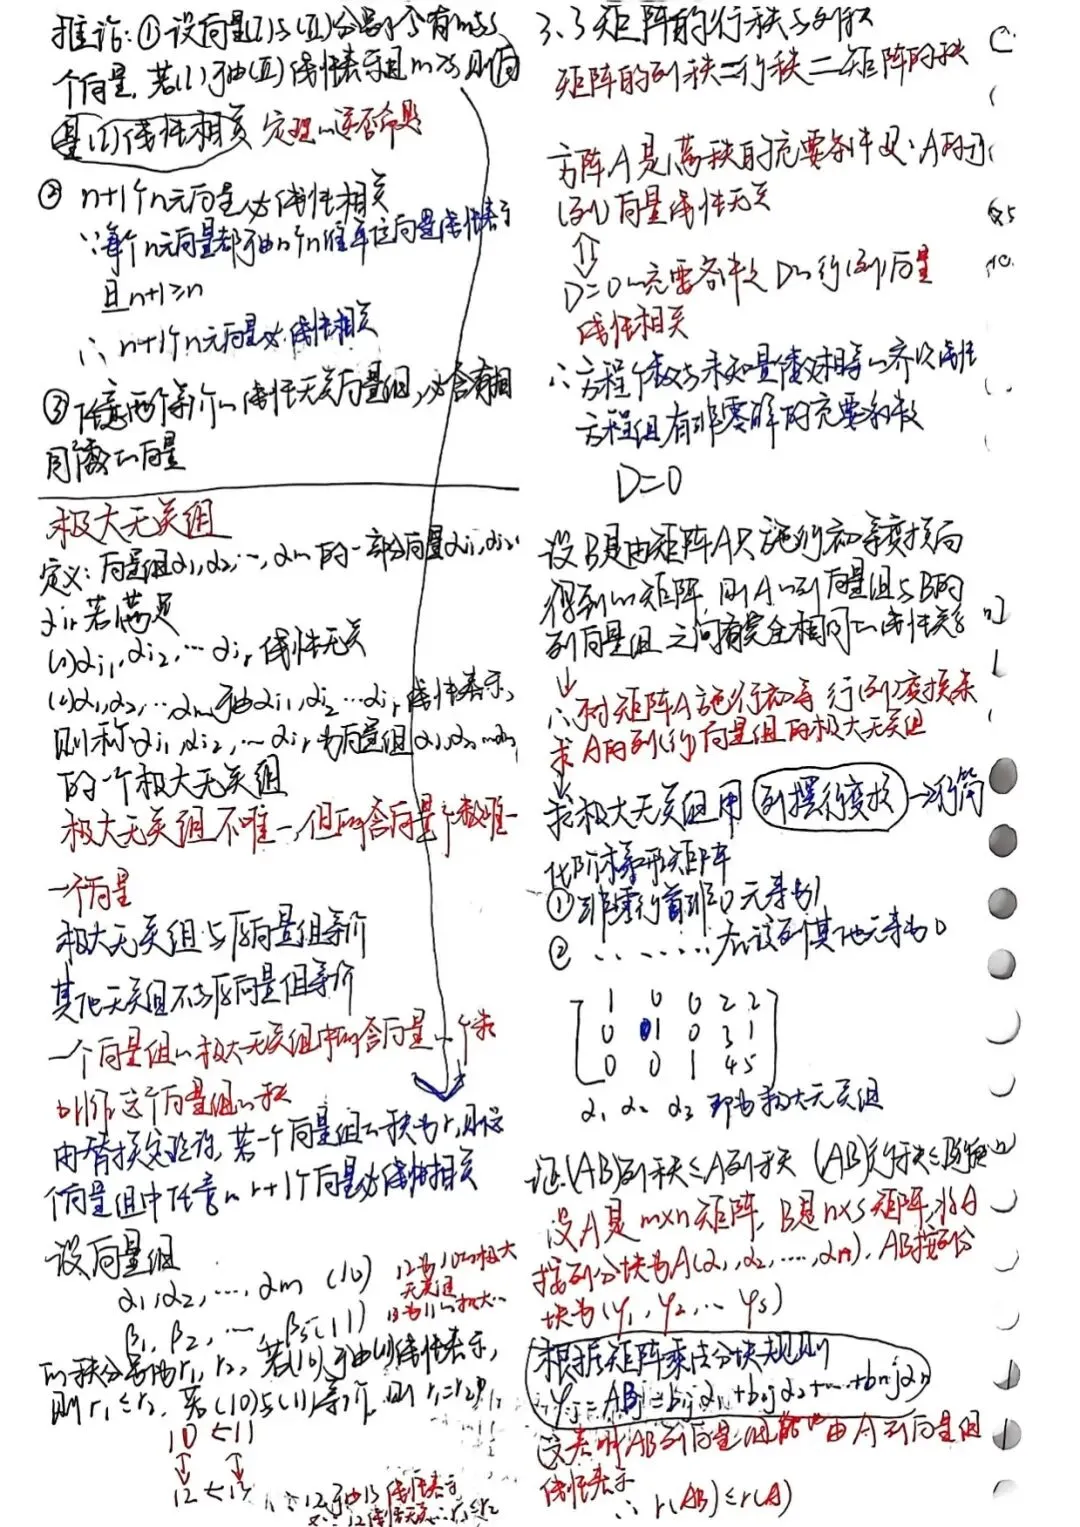 推论:①设向量(I)与(II)分别含有m与s
个向量,若(I)可由(II)线性表示且m>s,则向
量(I)线性相关 定理的逆否命题
② n+1个n元向量必线性相关
∵每个n元向量都可由n个n维单位向量线性表示
且n+1>n
∴n+1个n元向量必线性相关
③任意两个等价的线性无关向量组,必含有相
同个数的向量
极大无关组
定义:向量组α1,α2,…,αm的一部分向量αi1,αi2…
αir若满足
(1)αi1,αi2,…αir线性无关
(2)α1,α2,…αm可由αi1,αi2…αir线性表示,
则称αi1,αi2,…αir为向量组α1,α2…αm
的一个极大无关组
极大无关组不唯一,但所含向量个数唯一
一个向量
极大无关组与原向量组等价
其他无关组不与原向量组等价
一个向量组的极大无关组中所含向量的个数
叫作这个向量组的秩
由替换定理知,若一个向量组的秩为r,则该
个向量组中任意的r+1个向量必线性相关
设向量组
α1,α2,…,αm (10) 12为10的极大
无关组
β1,β2,…,βs(11) 13为11的极大…
的秩分别为r1,r2,若(10)可由(11)线性表示,
则r1≤r2,若(10)与(11)等价,则r1=r2
10 ← 11
↕ ↕
12 ← 13
∵12可由13线性表示
又∵12线性无关∴r1≤r2
3.3矩阵的行秩与列秩
矩阵的列秩=行秩=矩阵的秩
方阵A是满秩的充要条件是:A的行
(列)向量线性无关
⇕
D=0的充要条件是D的行(列)向量
线性相关
∴方程个数与未知量个数相等的齐次线性
方程组有非零解的充要条件
D=0
设B是由矩阵A只施行初等变换后
得到的矩阵,则A的列向量组与B的
列向量组之间有完全相同的线性关系
↓
∴对矩阵A施行初等行(列)变换来
求A的列(行)向量组的极大无关组
↓
求极大无关组用 列摆行变换→行简
化阶梯形矩阵
①非零行首非0元素为1
② ……所在该列其他元素为0
1 0 0 2 2
0 1 0 3 1
0 0 1 4 5
α1 α2 α3 即为极大无关组
证:(AB)列秩≤A列秩 (AB)行秩≤B行秩
设A是m×n矩阵,B是n×s矩阵,将A
按列分块为A(α1,α2,…,αn),AB按列分
块为(γ1,γ2,…γs)
根据矩阵乘法分块规则
γj=ABj=b1jα1+b2jα2+…+bnjαn
这表明AB列向量组能由A列向量组
线性表示
∴r(AB)≤r(A)